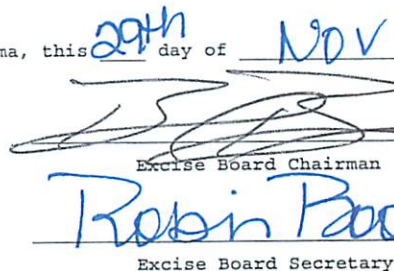 ma, this 29th day of Nov
Excise Board Chairman
Robin Boo
Excise Board Secretary